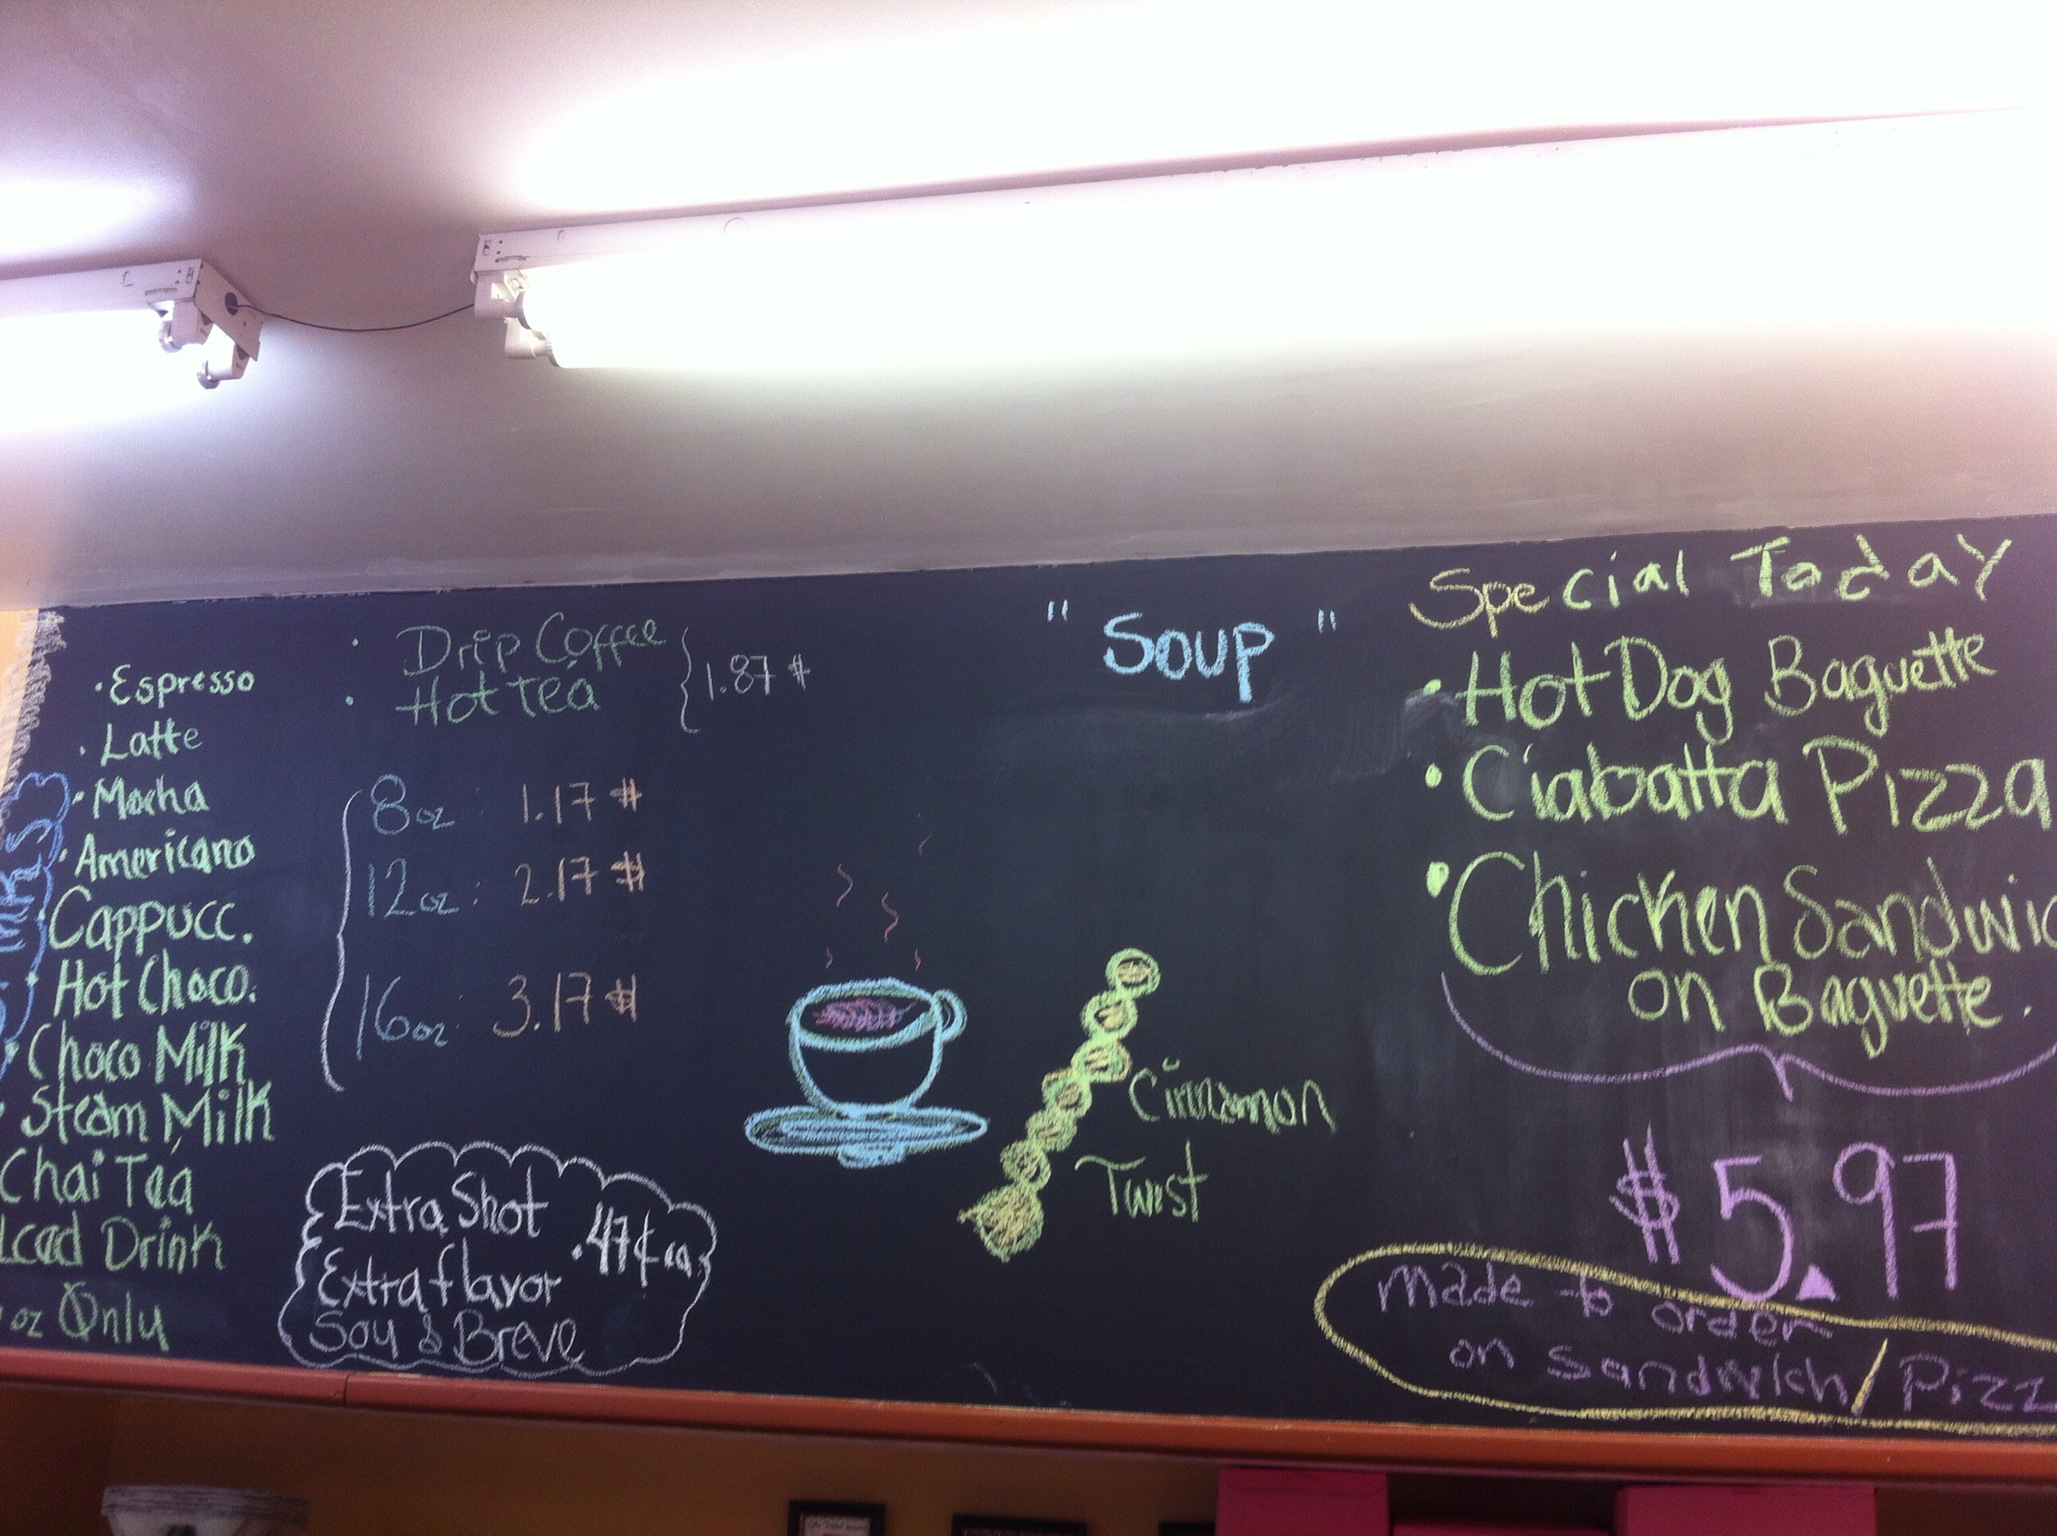 · Espresso
· Latte
· Mocha
· Americano
Cappucc.
Hot Choco.
· Choco Milk
· Steam Milk
Chai Tea
Iced Drink
oz Only
· Drip Coffee
· Hot Tea
1.87 $
8oz: 1.17 $
12oz: 2.17 $
16oz: 3.17 $
Extra Shot
Extra flavor
Soy & Breve
.47¢ ea
" Soup "
Cinnamon
Twist
Special Today
· Hot Dog Baguette
· Ciabatta Pizza
· Chicken Sandwic
on Baguette.
$5.97
made to order
on sandwich/Pizz